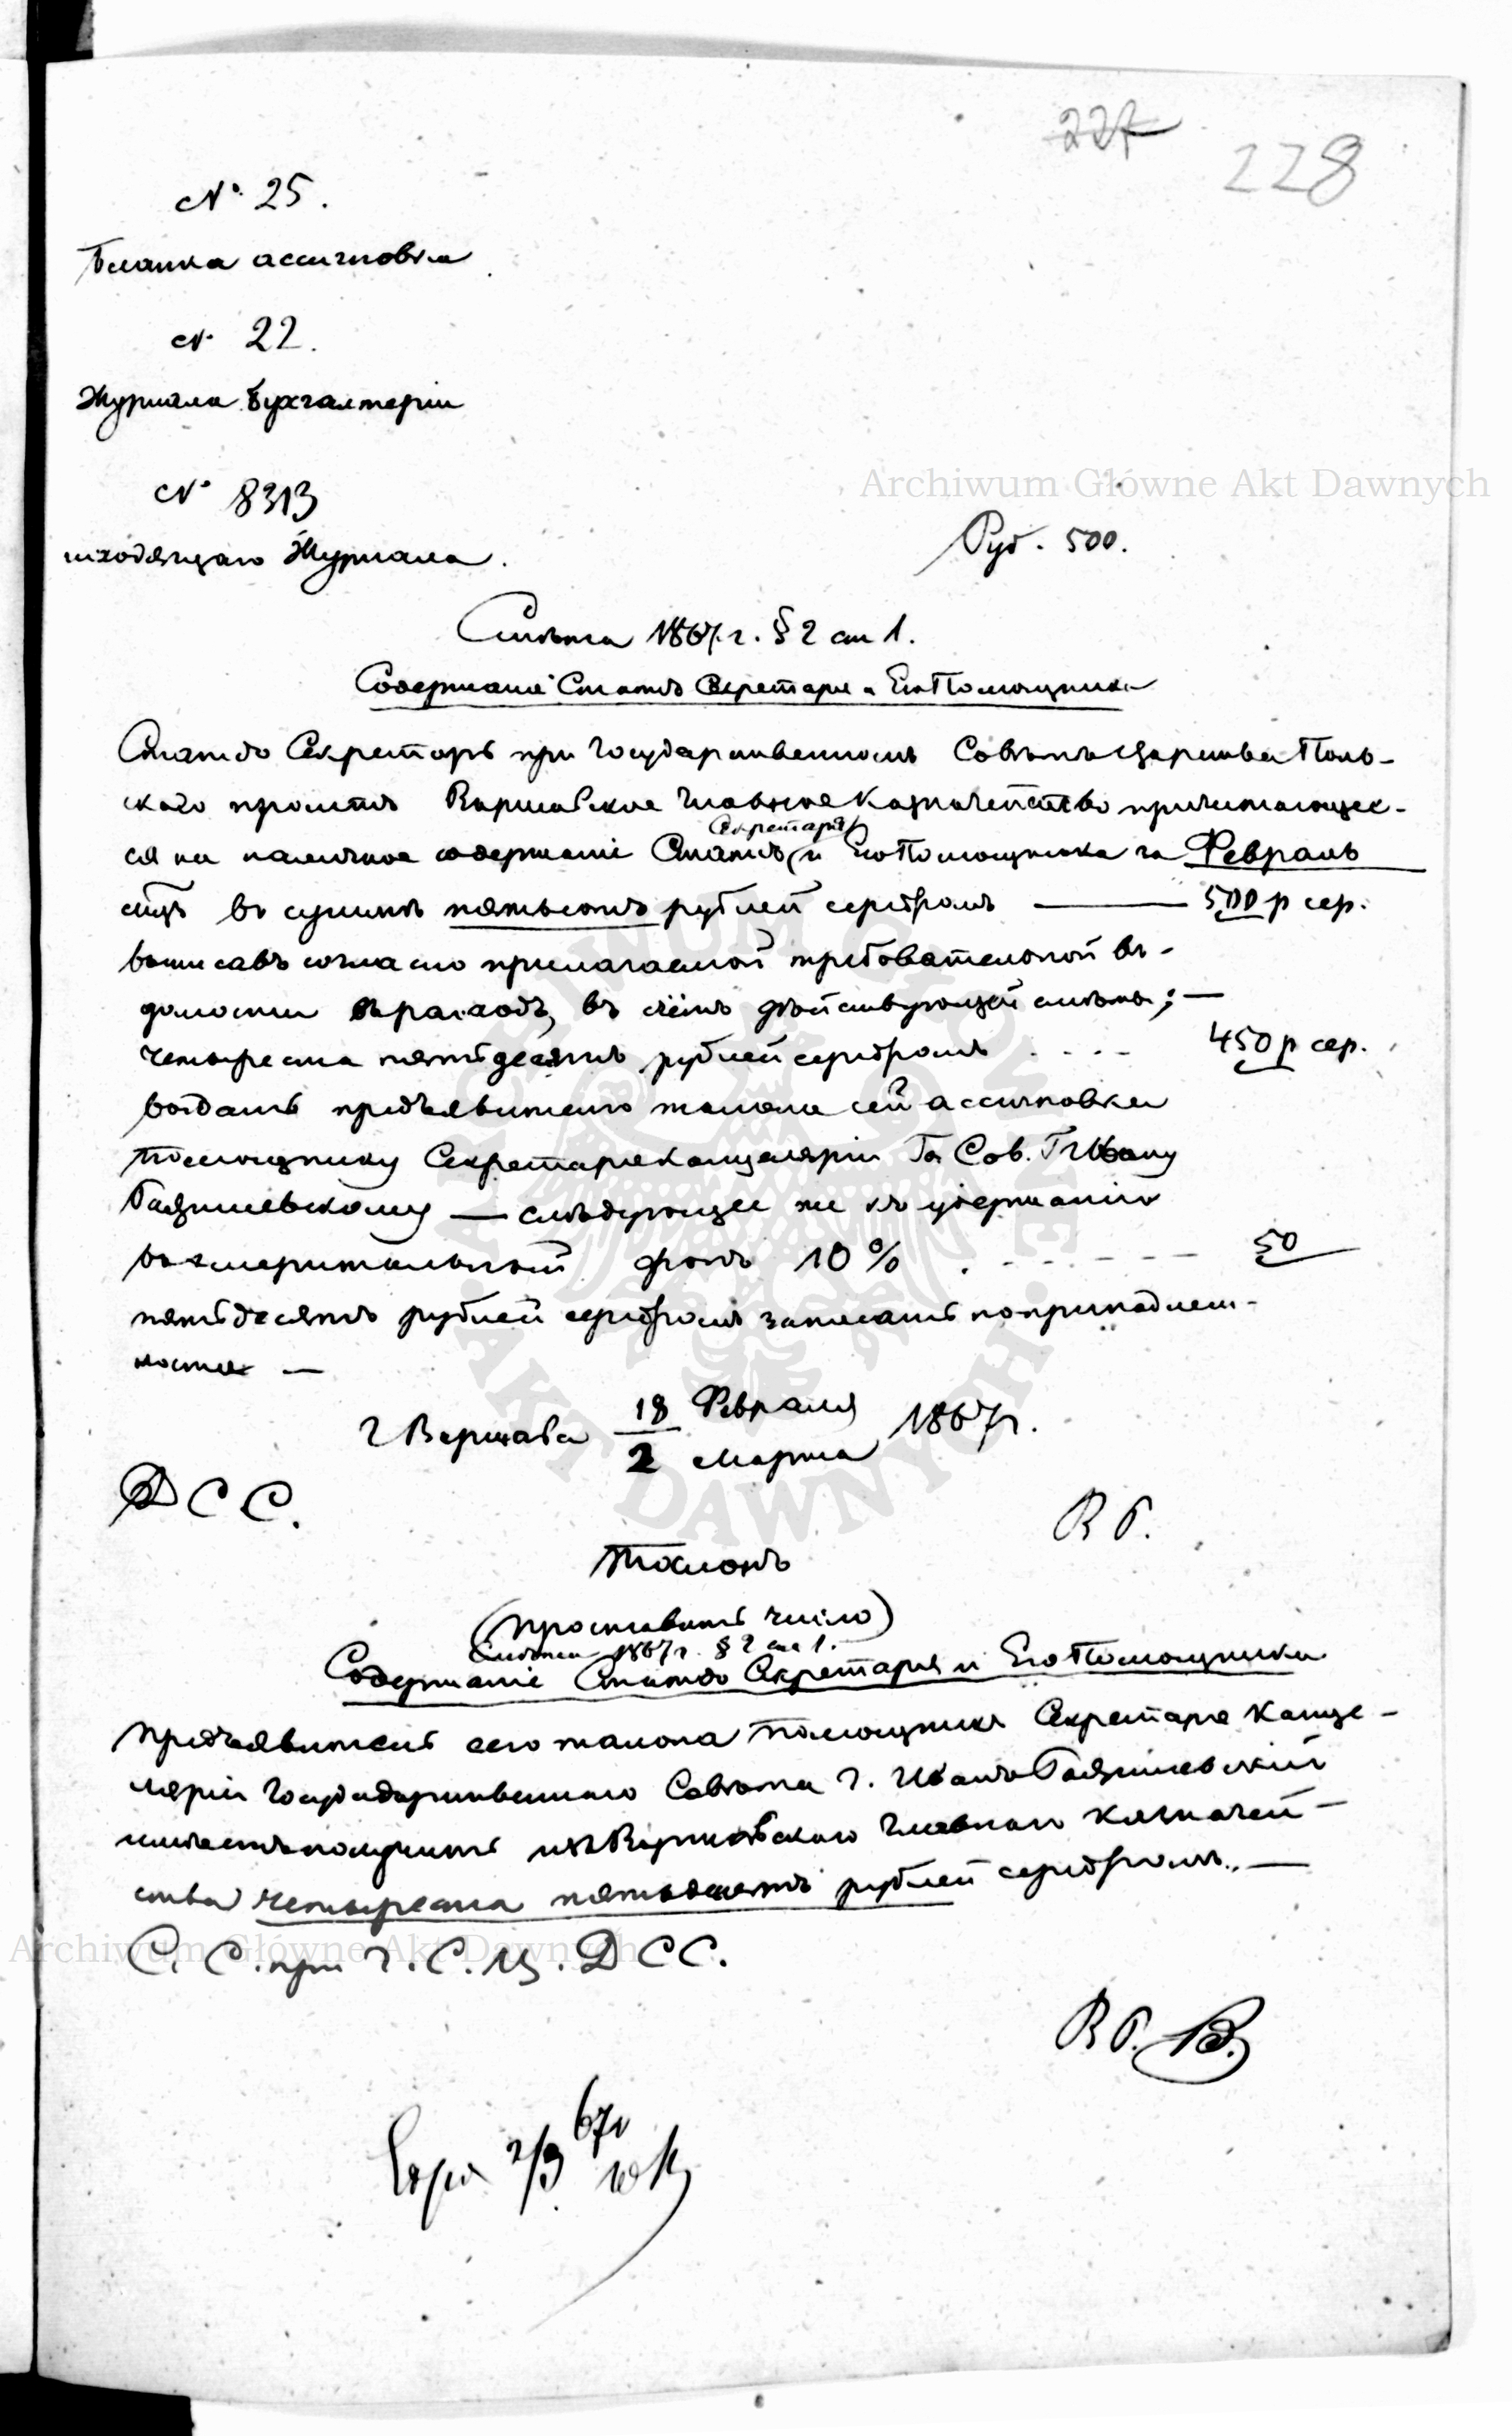 227
228
№ 25.
Бланка ассигновки
№ 22.
Журнала Бухгалтеріи
№ 8313
исходящаго Журнала.
Archiwum Główne Akt Dawnych
Руб. 500.
Смѣта 1867 г. § 2 ст 1.
Содержаніе Статсъ Секретаря и Его Помощника
Статсъ Секретарь при Государственномъ Совѣтѣ Царства Поль-
скаго проситъ Варшавское Главное Казначейство причитающее-
Секретаря
ся на наличное содержаніе Статсъ и Его Помощника за Февраль
мцъ въ суммѣ пятьсотъ рублей серебромъ — 500 р сер.
выписавъ согласно прилагаемой требовательной вѣ-
домости въ расходъ, въ счетъ дѣйствующей смѣты; —
четыреста пятьдесятъ рублей серебромъ . . . . 450 р сер.
выдать предъявителю талона сей ассигновки
Помощнику Секретаря Канцеляріи Го. Сов. Г. Ивану
— слѣдующее же къ удержанію
въ эмеритальный фондъ 10 % . - - - - - 50
пятьдесятъ рублей серебромъ записать по принадлеж-
ности —
г Варшава 18 Февраля / 2 Марта 1867 г.
Д С С.
В Б.
Талонъ
(проставить число)
Смѣта 1867 г. § 2 ст 1.
Содержаніе Статсъ Секретаря и Его Помощника
Предъявитель сего талона Помощникъ Секретаря Канце-
ляріи Государственнаго Совѣта Г. Иванъ
имѣетъ получить изъ Варшавскаго Главнаго Казначей-
ства четыреста пятьдесятъ рублей серебромъ. —
Archiwum Główne Akt Dawnych
С. С. при Г. С. Ц. Д С С.
В Б. В.
2/3 67
ARCHIWUM GŁÓWNE AKT DAWNYCH